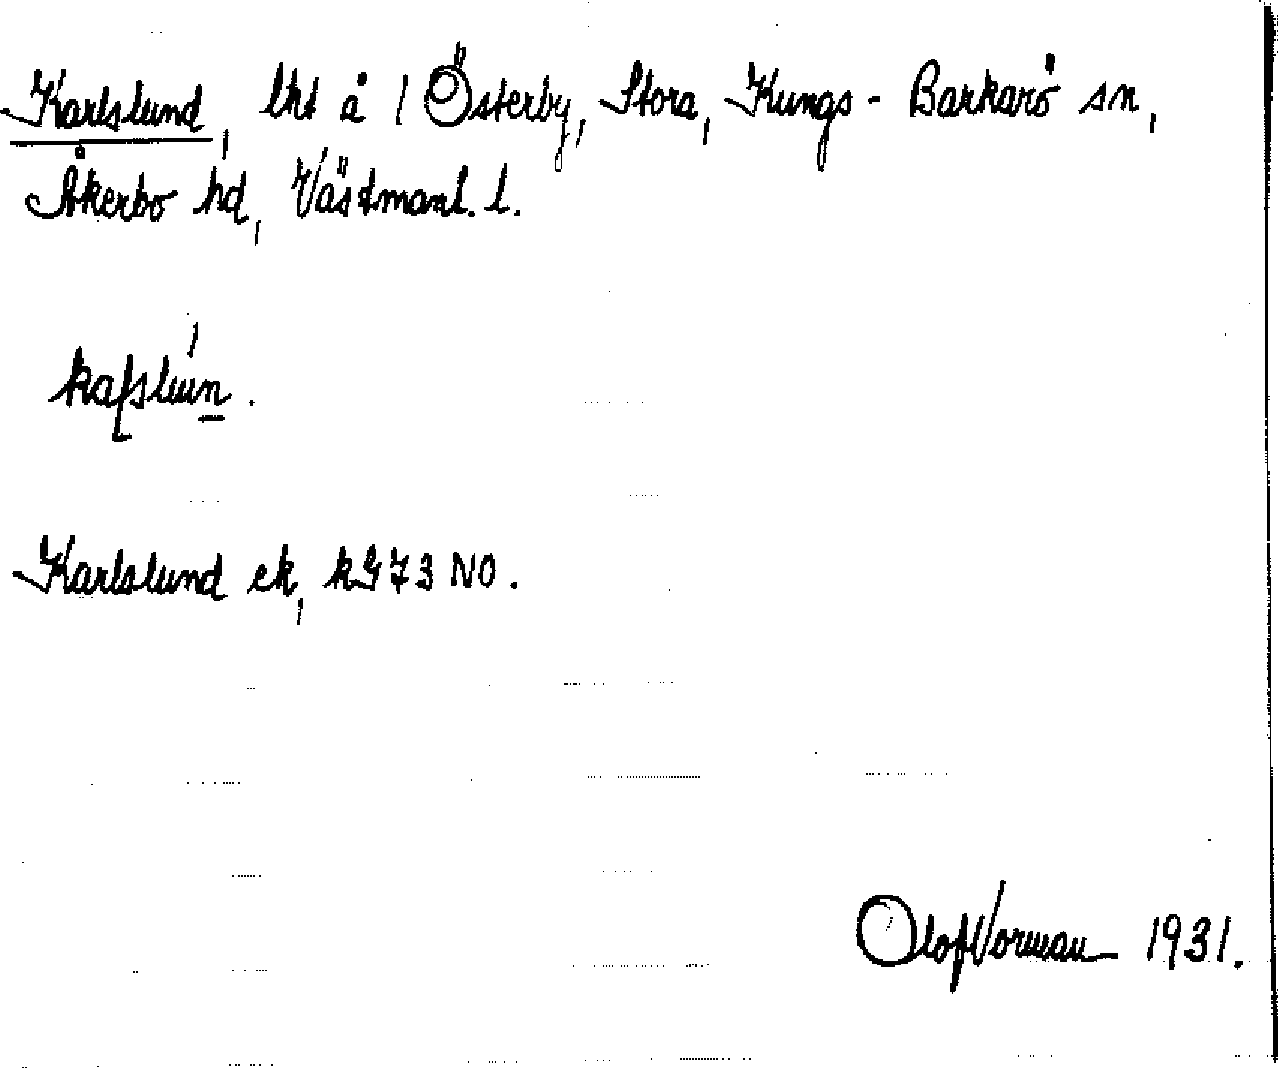 Karlslund, lht å 1 Österby, Stora, Kungs-Barkarö sn,
Åkerbo hd, Västmanl. l.
Karlslund ek, kG73 NO.
Olof Vorman 1931.